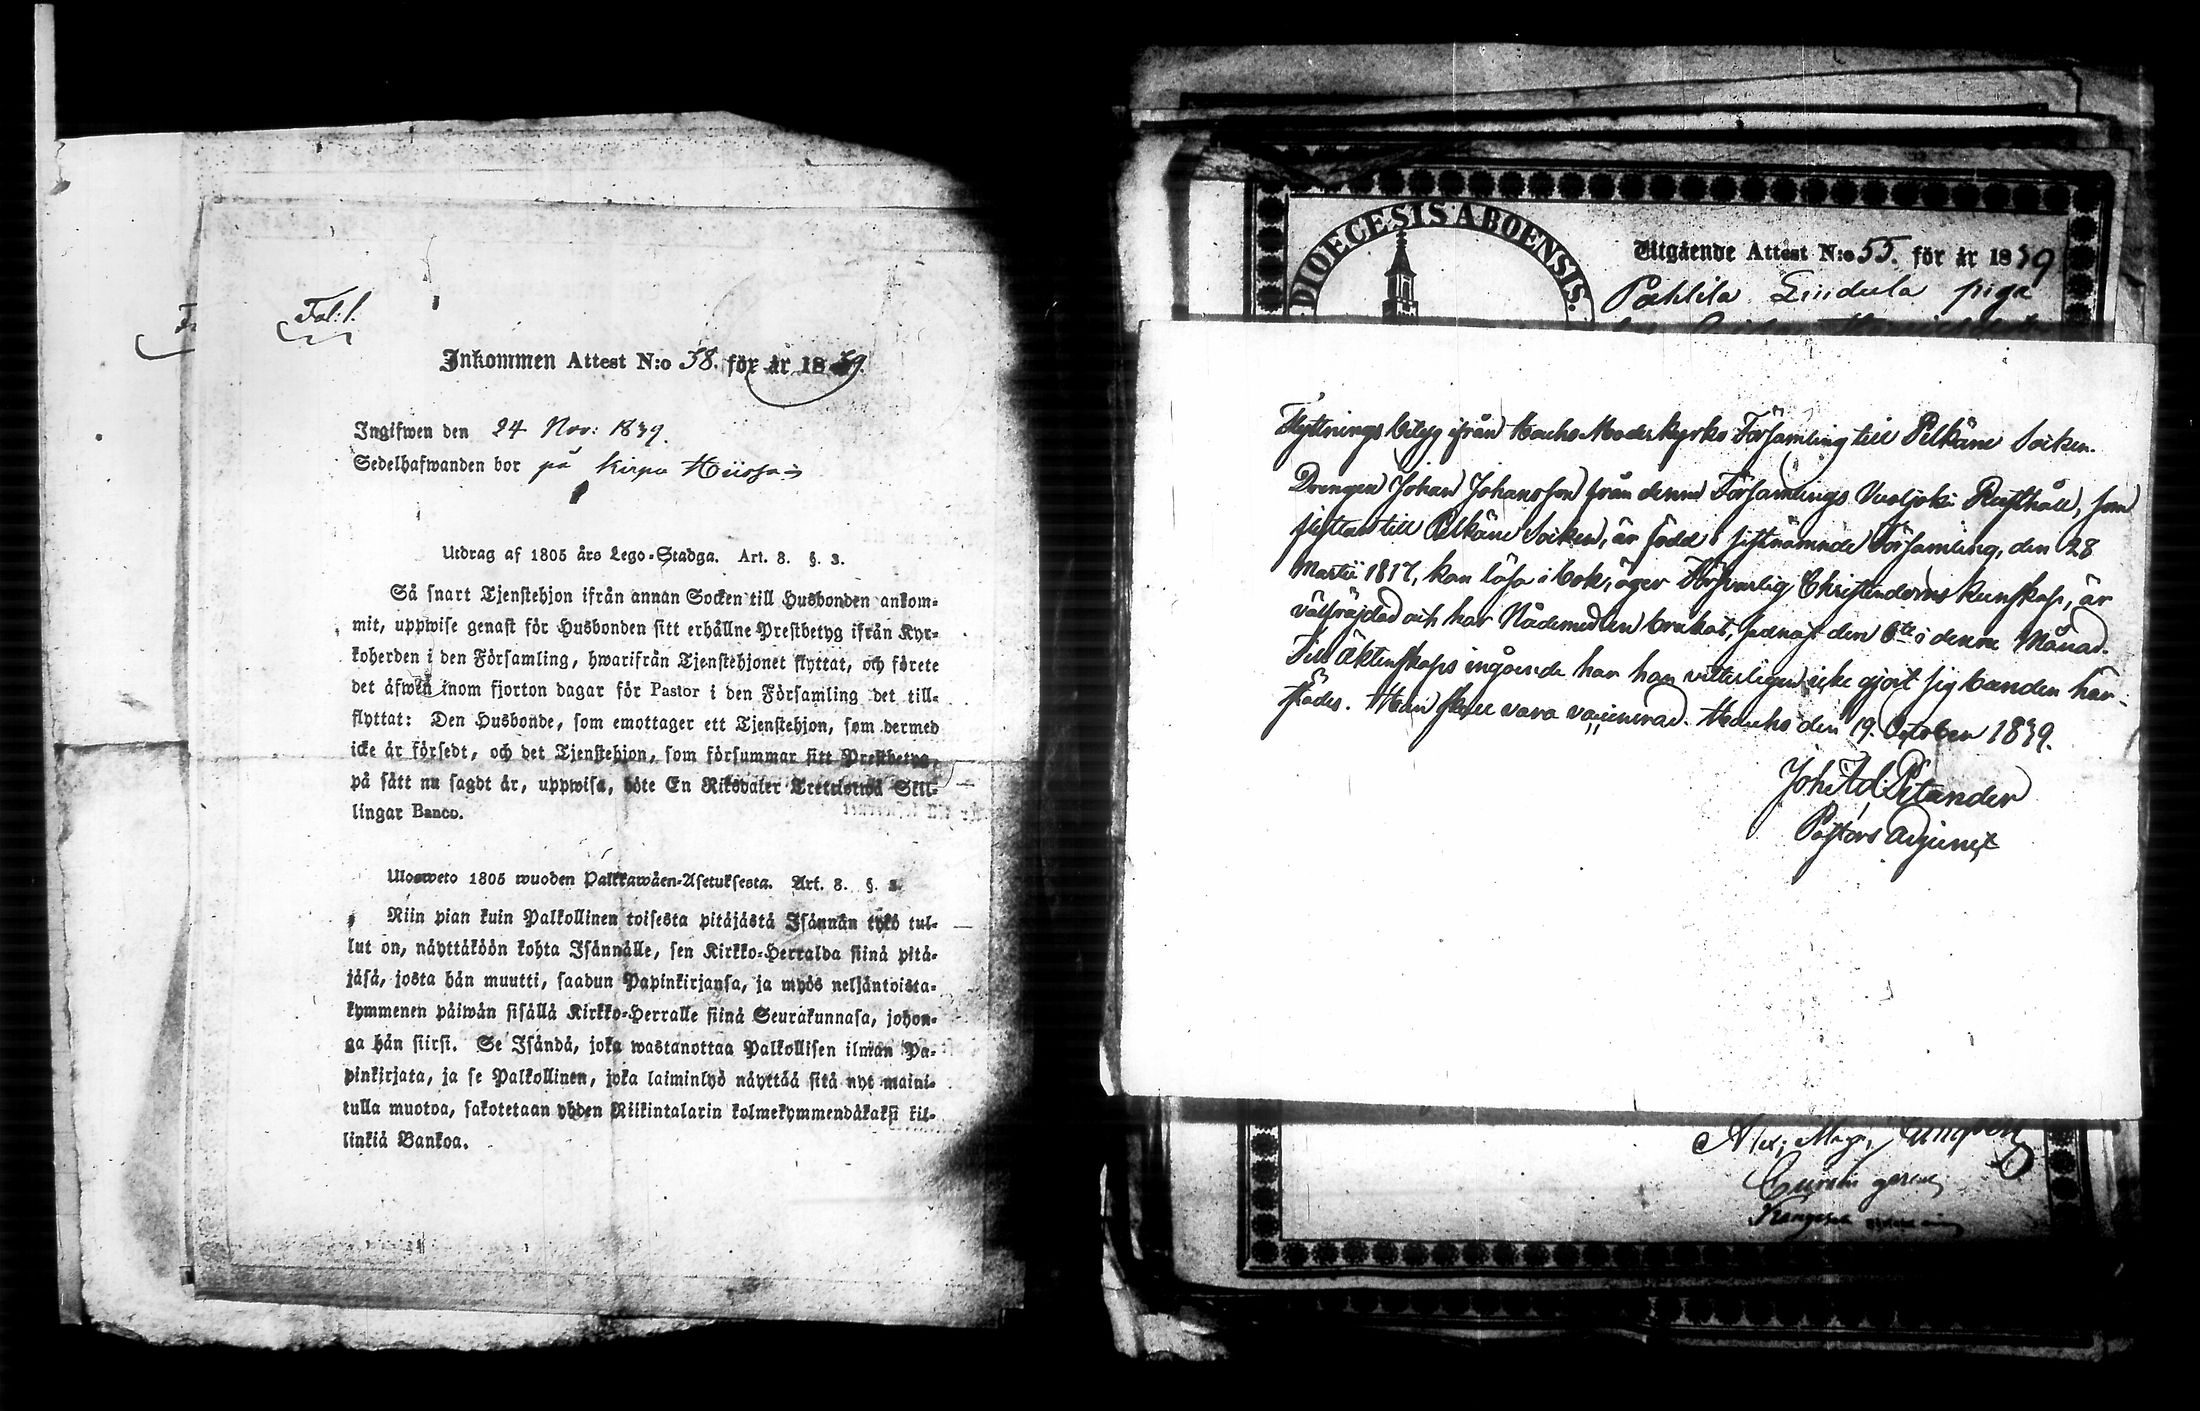 Fol: 1.
Inkommen Attest N:o 58. för år 1839.
Ingifwen den 24 Nov: 1839.
Sedelhafwanden bor på Kirpu Hiisha
Utdrag af 1805 års Lego-Stadga. Art. 8. §. 3.
Så snart Tjenstehjon ifrån annan Socken till Husbonden ankom-
mit, uppwise genast för Husbonden sitt erhållne Prestbetyg ifrån Kyr-
koherden i den Församling, hwarifrån Tjenstehjonet flyttat, och förete
det äfwen inom fjorton dagar för Pastor i den Församling det till-
flyttat: Den Husbonde, som emottager ett Tjenstehjon, som dermed
icke är försedt, och det Tjenstehjon, som försummar sitt Prestbetyg,
på sätt nu sagdt är, uppwisa, böte En Riksdaler Trettiotwå Skil-
lingar Banco.
Ulosweto 1805 wuoden Palkkawäen-Asetuksesta. Art. 8. §. 3.
Niin pian kuin Palkollinen toisesta pitäjästä Isännän tykö tul-
lut on, näyttäköön kohta Isännälle, sen Kirkko-Herralda siinä pitä-
jäsä, josta hän muutti, saadun Papinkirjansa, ja myös neljäntoista-
kymmenen päiwän sisällä Kirkko-Herralle siinä Seurakunnasa, johon-
ga hän siirsi. Se Isändä, joka wastanottaa Palkollisen ilman Pa-
pinkirjata, ja se Palkollinen, joka laiminlyö näyttää sitä nyt maini-
tulla muotoa, sakotetaan yhden Riikintalarin kolmekymmendäkaksi kil-
linkiä Bankoa.
DIOECESIS ABOENSIS.
Utgående Attest N:o 55. för år 1839
Pahlila Sindula piga
Flyttnings betyg ifrån Hauho Moderkyrko Församling till Pelkäne Socken.
Drengen Johan Johansson från denna Församlings Vuoljoki Rusthåll, som
flyttar till Pelkäne Socken, är född i sistnämnde Församling, den 28
Martii 1817, kan läsa i bok, äger försvarlig Christendoms kunskap, är
välfräjdad och har Nådemedlen brukat, sednast den 6te i denna Månad.
Till Äktenskaps ingående har han vitterligen icke gjort sig bunden här-
städes. Han skall vara vaccinerad. Hauho den 19. October 1839.
Joh: Ad. Petander
Pastors Adjunct